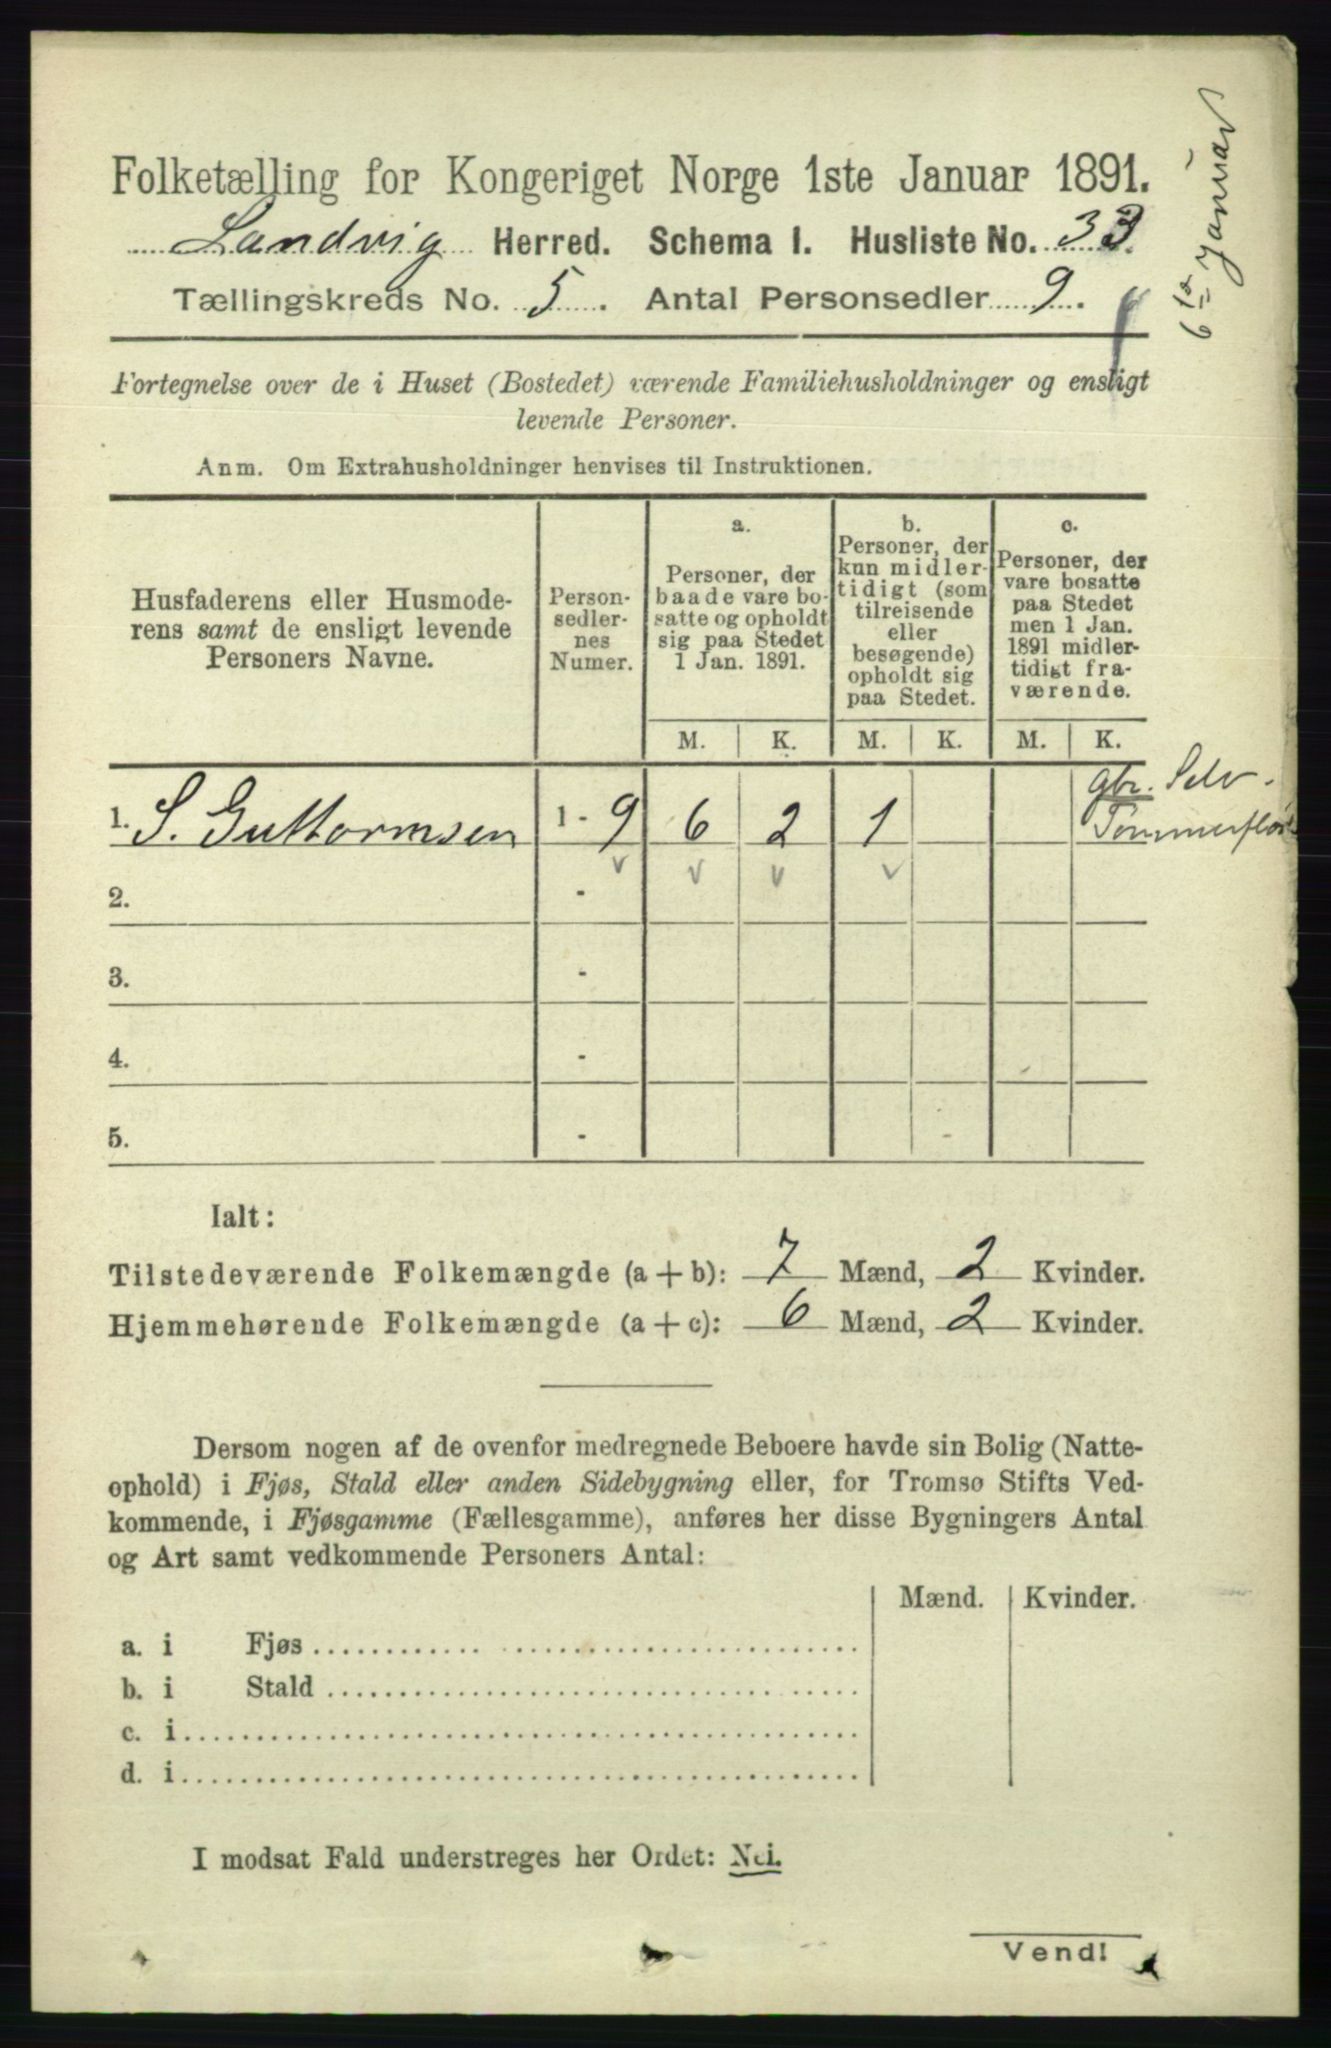 6te Januar
Folketælling for Kongeriget Norge 1ste Januar 1891.
Landvig Herred. Schema I. Husliste No. 33.
Tællingskreds No. 5. Antal Personsedler 9.
Fortegnelse over de i Huset (Bostedet) værende Familiehusholdninger og ensligt
levende Personer.
Anm. Om Extrahusholdninger henvises til Instruktionen.
Husfaderens eller Husmode-
rens samt de ensligt levende
Personers Navne.
Person-
sedler-
nes
Numer.
a.
Personer, der
baade vare bo-
satte og opholdt
sig paa Stedet
1 Jan. 1891.
b.
Personer, der
kun midler-
tidigt (som
tilreisende
eller
besøgende)
opholdt sig
paa Stedet.
c.
Personer, der
vare bosatte
paa Stedet
men 1 Jan.
1891 midler-
tidigt fra-
værende.
M. K. M. K. M. K.
gbr. Selv.
1. S. Guttormsen 1 - 9 6 2 1 Tømmerflød
2. -
3. -
4. -
5. -
Ialt:
Tilstedeværende Folkemængde (a + b): 7 Mænd, 2 Kvinder.
Hjemmehørende Folkemængde (a + c): 6 Mænd, 2 Kvinder.
Dersom nogen af de ovenfor medregnede Beboere havde sin Bolig (Natte-
ophold) i Fjøs, Stald eller anden Sidebygning eller, for Tromsø Stifts Ved-
kommende, i Fjøsgamme (Fællesgamme), anføres her disse Bygningers Antal
og Art samt vedkommende Personers Antal:
Mænd. Kvinder.
a. i Fjøs
b. i Stald
c. i
d. i
I modsat Fald understreges her Ordet: Nei.
Vend!